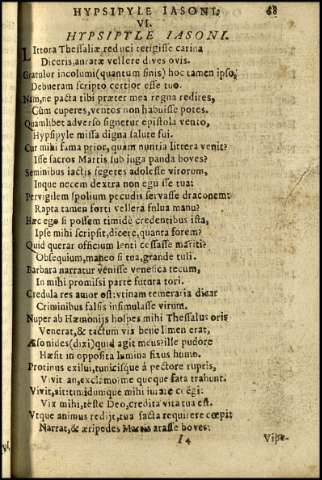 HYPSIPYLE IASONI. 68
VI.
HYPSIPYLE IASONI.
LIttora Thessaliæ reduci tetigisse carina
Diceris, auratæ vellere dives ovis.
Gratulor incolumi (quantum sinis) hoc tamen ipso,
Debueram scripto certior esse tuo.
Nam, ne pacta tibi præter mea regna redires,
Cùm cuperes, ventos non habuisse potes.
Quamlibet adverso signetur epistola vento,
Hypsipyle missa digna salute fui.
Cur mihi fama prior, quam nuntia littera venit?
Isse sacros Martis sub juga panda boves?
Seminibus iactis segetes adolesse virorum,
Inque necem dextra non eguisse tua:
Pervigilem spolium pecudis servasse draconem:
Rapta tamen forti vellera fulua manu?
Hæc ego si possem timidè credentibus ista,
Ipse mihi scripsit, dicere, quanta forem?
Quid querar officium lenti cessasse mariti?
Obsequium, maneo si tua, grande tuli.
Barbara narratur venisse venefica tecum,
In mihi promissi parte futura tori.
Credula res amor est: vtinam temeraria dicar
Criminibus falsis insimulasse virum.
Nuper ab Hæmonijs hospes mihi Thessalus oris
Venerat, & tactum vix bene limen erat,
Æsonides (dixi) quid agit meus? ille pudore
Hæsit in opposita lumina fixus humo.
Protinus exilui, tunicisque à pectore ruptis,
Vivit an, exclamo, me quoque fata trahunt.
Vivit, ait: timidumque mihi iurare coegi:
Vix mihi, teste Deo, credita vita tua est.
Vtque animus redijt, tua facta requirere cœpi:
Narrat, & æripedes Martis arasse boves:
I 4 Vipe-